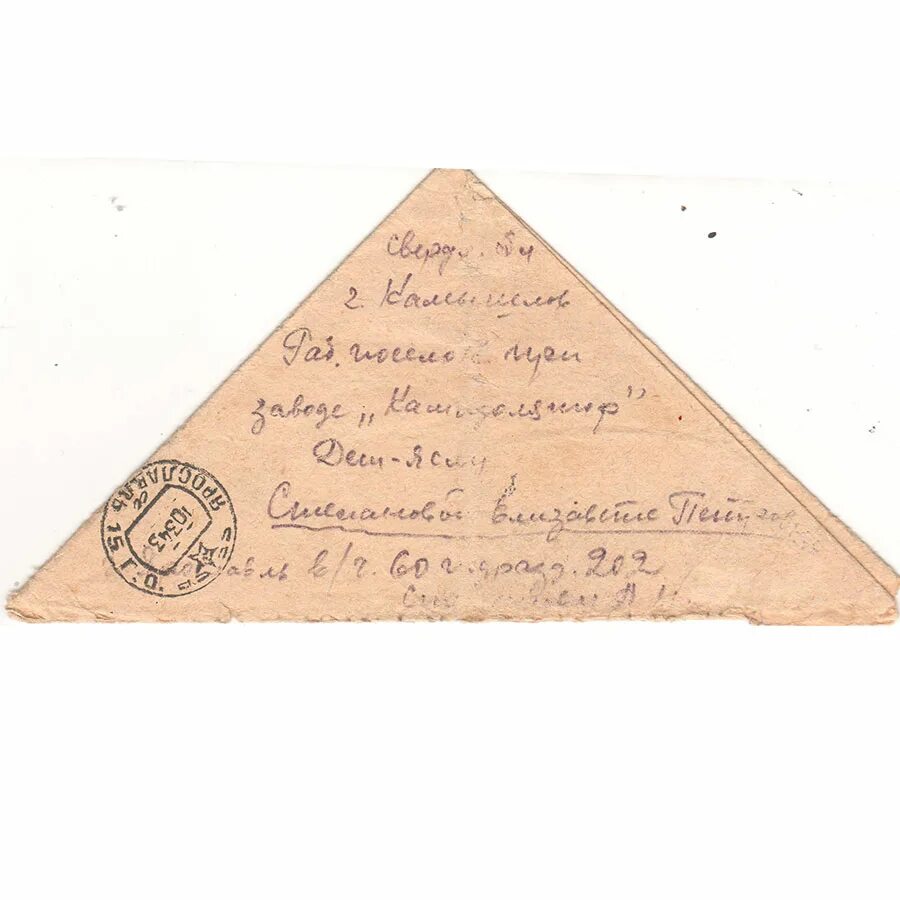 Свердл. обл
г. Камышлов
Раб. поселок при
заводе „Катизолятор"
Дет-Ясли
Степановой Елизавете Петров
в/ч. 60 г. разд. 202
СССР
ЯРОСЛАВЛЬ 15
10343